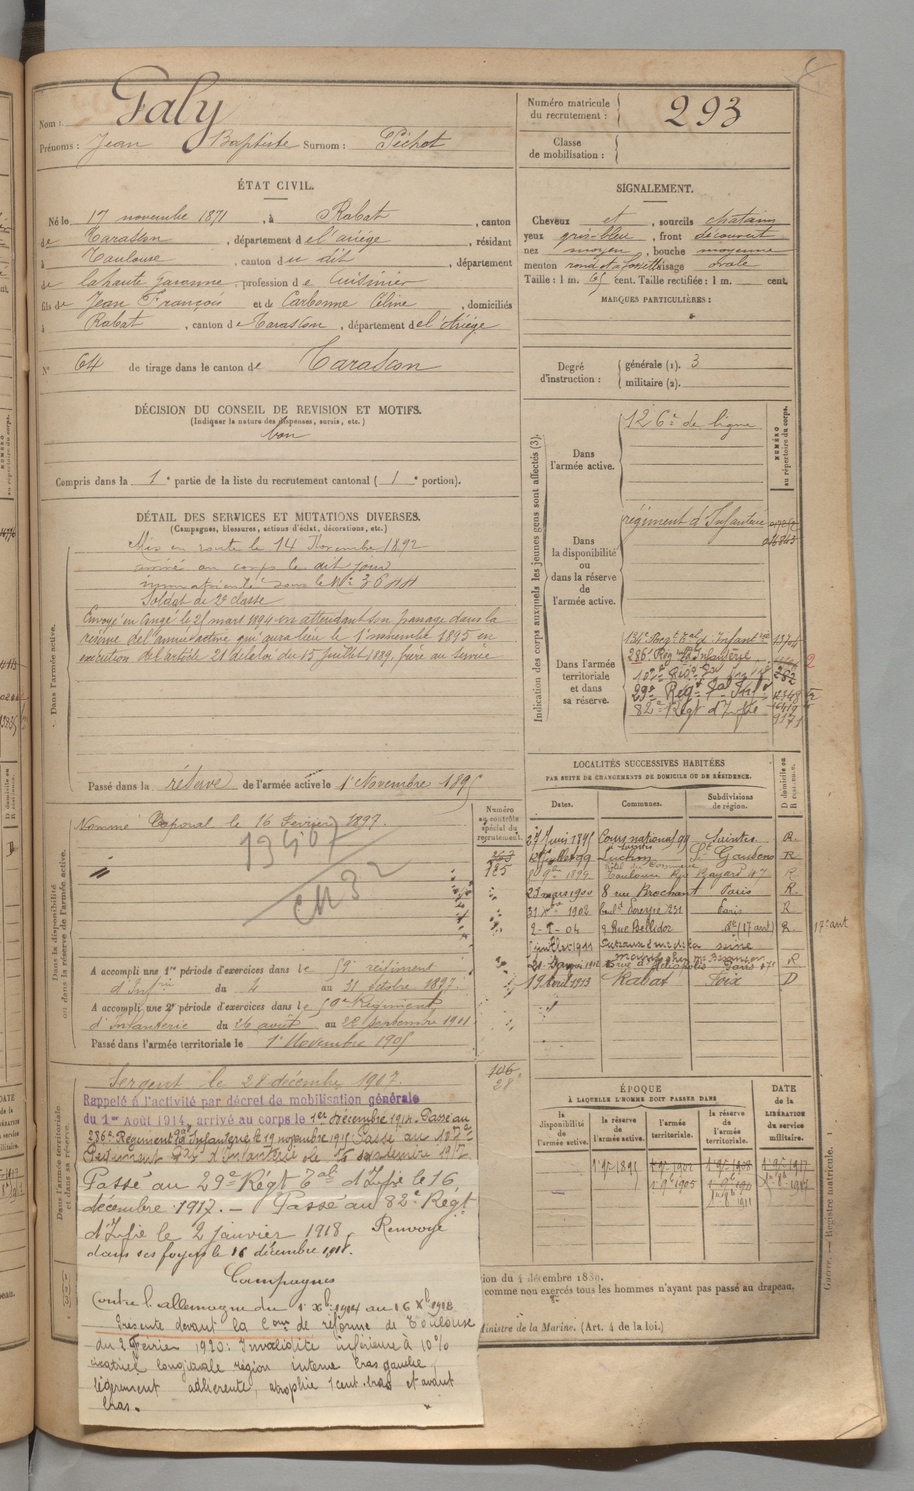 Nom : Galy
Prénoms : Jean Baptiste Surnom : Pichot
Numéro matricule du recrutement : 293
Classe de mobilisation :
ÉTAT CIVIL.
Né le 17 novembre 1871, à Rabat, canton
de Tarascon, département de l'ariège, résidant
à Toulouse, canton du dit, département
de la haute garonne, profession de Cuisinier
fils de Jean François et de Carbonne Céline, domiciliés
à Rabat, canton de Tarascon, département de l'Ariège
N° 64 de tirage dans le canton de Tarascon
SIGNALEMENT.
Cheveux et, sourcils chatains
yeux gris-bleu, front découvert
nez moyen, bouche moyenne
menton rond et à fossette visage ovale
Taille : 1 m. 65 cent. Taille rectifiée : 1 m. cent.
MARQUES PARTICULIÈRES :
Degré d'instruction : générale (1). 3
militaire (2).
DÉCISION DU CONSEIL DE REVISION ET MOTIFS.
(Indiquer la nature des dispenses, sursis, etc.)
bon
Compris dans la 1e partie de la liste du recrutement cantonal (1e portion).
DÉTAIL DES SERVICES ET MUTATIONS DIVERSES.
(Campagnes, blessures, actions d'éclat, décorations, etc.)
Dans l'armée active.
Mis en route le 14 Novembre 1892
arrivé au corps le dit jour
immatriculé sous le N°
Soldat de 2e classe
Envoyé en congé le 21 mars 1894 en attendant son passage dans la
réserve de l'armée active qui aura lieu le 1er novembre 1895 en
exécution de l'article 21 de la loi du 15 juillet 1889. frère au service
Passé dans la réserve de l'armée active le 1er Novembre 1895
Indication des corps auxquels les jeunes gens sont affectés (3).
NUMÉRO au répertoire du corps.
Dans l'armée active.
126e de ligne
Dans la disponibilité ou dans la réserve de l'armée active.
régiment d'Infanterie
Dans l'armée territoriale et dans sa réserve.
134e Regt Tal d'Infanterie
286e Reg d'Infanterie
29e Regt Tal Infie
82e Regt d'Infie
Dans la disponibilité ou dans la réserve de l'armée active.
Nommé Caporal le 16 Février 1897.
Numéro au contrôle spécial du recrutement.
185
A accompli une 1re période d'exercices dans le 59e régiment
d'Infrie du 4 au 31 octobre 1897.
A accompli une 2e période d'exercices dans le 59e Régiment
d'Infanterie du 26 août au 22 septembre 1901
Passé dans l'armée territoriale le 1er Novembre 1905
LOCALITÉS SUCCESSIVES HABITÉES
PAR SUITE DE CHANGEMENTS DE DOMICILE OU DE RÉSIDENCE.
Dates. Communes. Subdivisions de région. D domicile ou R résidence.
27 Juin 1895 Cours national 99 Saintes R.
Luchon St Gaudens R
Toulouse Rue Bayard 47 R
23 mars 1900 8 rue Brochant Paris R
1902 Bould Pereire 231 Paris R
2-1-04 3 Rue Bellidor do (17 ant) R. 17e ant
19 Avril 1913 Rabat Foix D
Dans l'armée territoriale et dans sa réserve.
Sergent le 28 décembre 1907.
106
28
Rappelé à l'activité par décret de mobilisation générale
du 1er Août 1914, arrivé au corps le 1er décembre 1914. Passé au
286e Régiment d'Infanterie le 19 novembre 1915 Passé au 137e
Régiment Tal d'Infanterie le 16 septembre 1917
Passé au 29e Régt Tal d'Infie le 16
décembre 1917. — Passé au 82e Régt
d'Infie le 2 janvier 1918. Renvoyé
dans ses foyers le 16 décembre 1918.
Campagnes
Contre l'allemagne du 1er Xbre 1914 au 16 Xbre 1918
Présenté devant la Com de réforme de Toulouse
du 2 Février 1920 : Invalidité inférieure à 10%
cicatrice longitudinale région interne bras gauche,
légèrement adhérente, atrophie 1 cent. bras et avant
bras.
ÉPOQUE
À LAQUELLE L'HOMME DOIT PASSER DANS
la disponibilité de l'armée active. la réserve de l'armée active. l'armée territoriale. la réserve de l'armée territoriale.
DATE de la LIBÉRATION du service militaire.
1er 9bre 1895
1er 9bre 1905
Guerre. — Registre matricule. 1
comme non exercés tous les hommes n'ayant pas passé au drapeau.
Ministre de la Marine. (Art. 4 de la loi.)